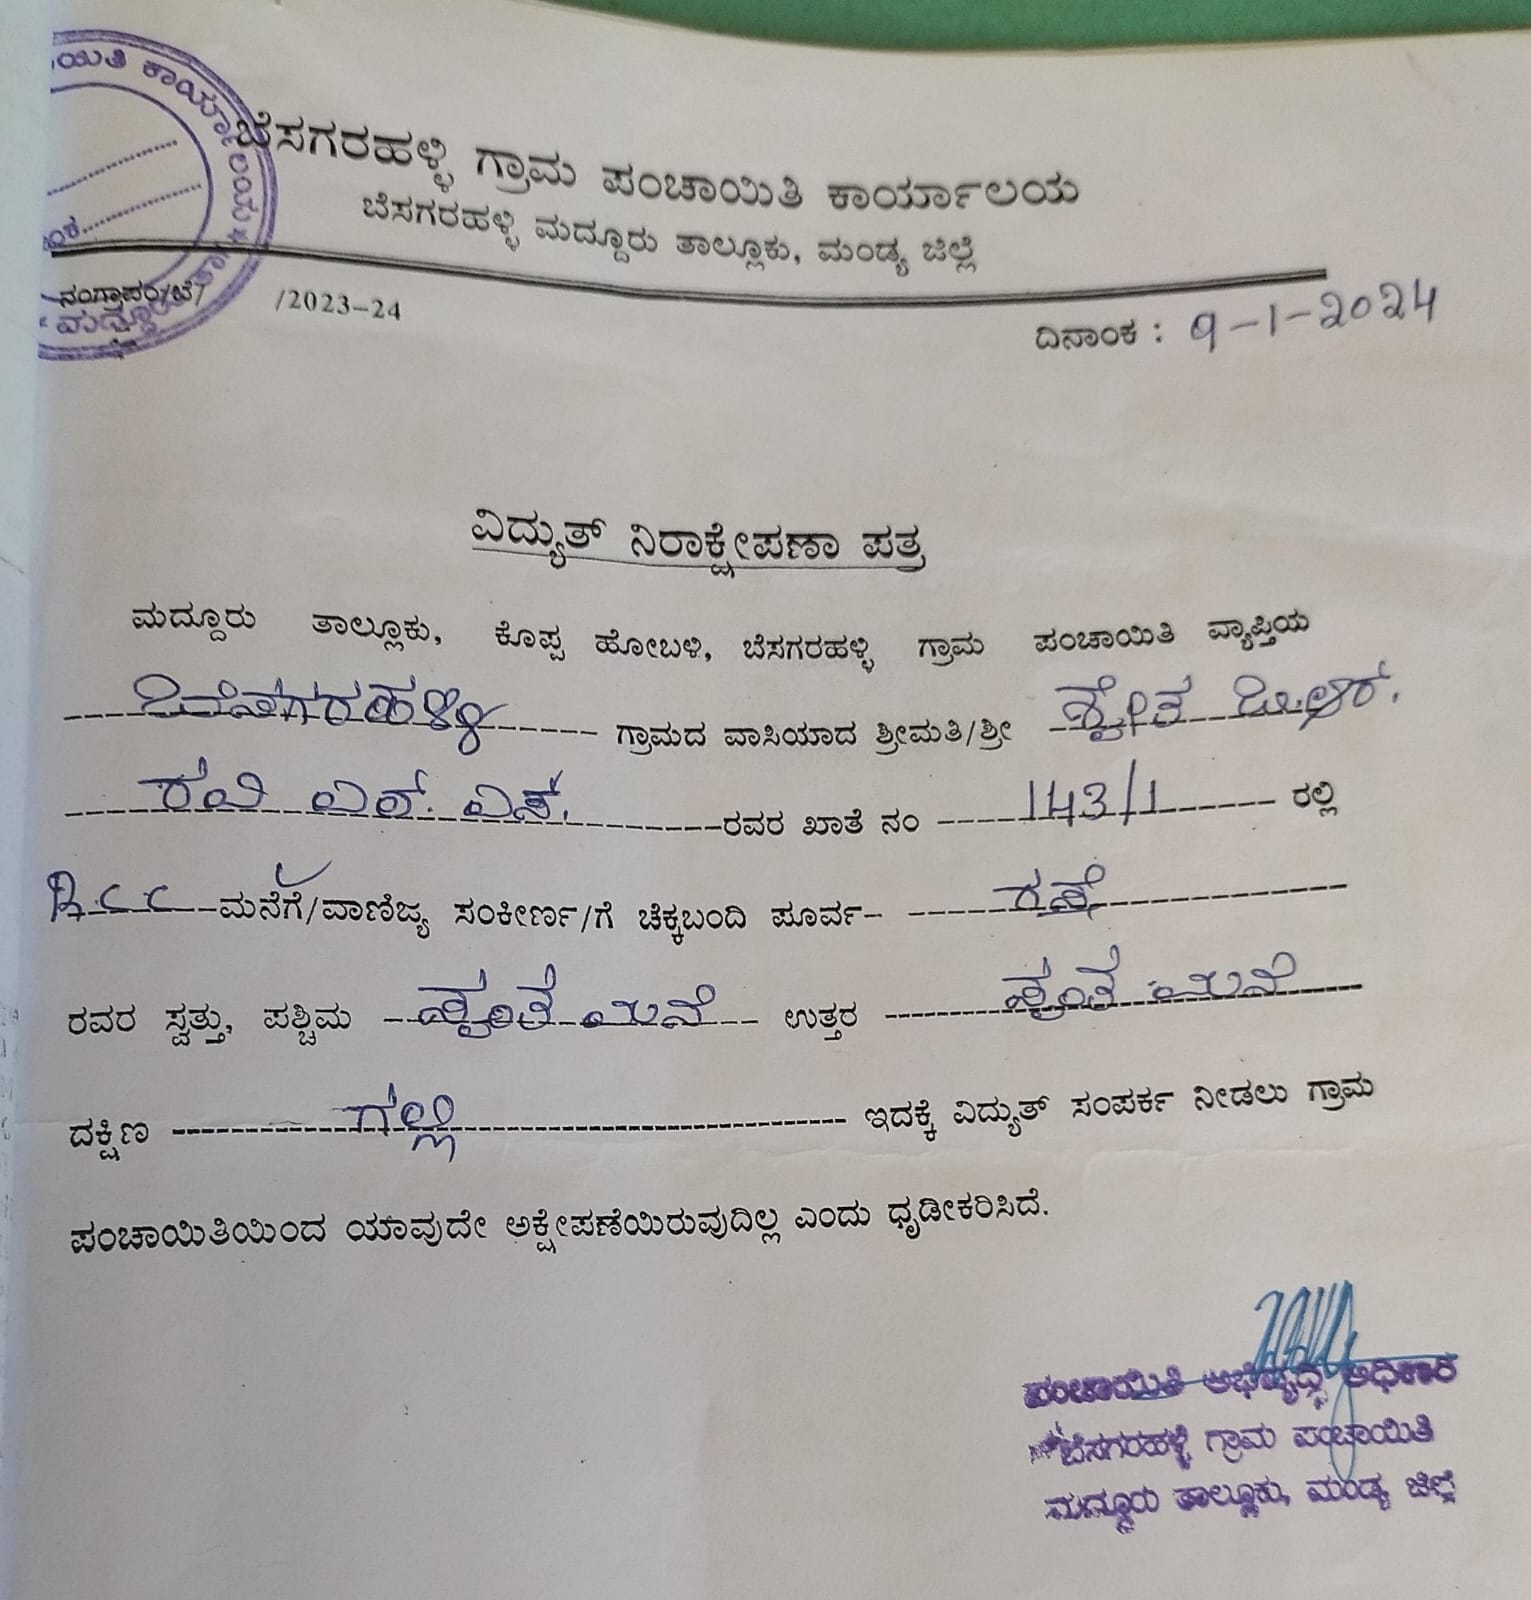 ಬೆಸಗರಹಳ್ಳಿ ಗ್ರಾಮ ಪಂಚಾಯಿತಿ ಕಾರ್ಯಾಲಯ
ಬೆಸಗರಹಳ್ಳಿ ಮದ್ದೂರು ತಾಲ್ಲೂಕು, ಮಂಡ್ಯ ಜಿಲ್ಲೆ
ಯಿತಿ ಕಾರ್ಯಾಲಯ
/2023-24
ದಿನಾಂಕ : 9-1-2024
ವಿದ್ಯುತ್ ನಿರಾಕ್ಷೇಪಣಾ ಪತ್ರ
ಮದ್ದೂರು ತಾಲ್ಲೂಕು, ಕೊಪ್ಪ ಹೋಬಳಿ, ಬೆಸಗರಹಳ್ಳಿ ಗ್ರಾಮ ಪಂಚಾಯಿತಿ ವ್ಯಾಪ್ತಿಯ
ಬೆಸಗರಹಳ್ಳಿ ಗ್ರಾಮದ ವಾಸಿಯಾದ ಶ್ರೀಮತಿ/ಶ್ರೀ ಶ್ವೇತ ಬಿ.ಆರ್.
ರವಿ ಎಲ್. ಎಸ್. ರವರ ಖಾತೆ ನಂ 143/1 ರಲ್ಲಿ
R.C.C ಮನೆಗೆ/ವಾಣಿಜ್ಯ ಸಂಕೀರ್ಣ/ಗೆ ಚೆಕ್ಕಬಂದಿ ಪೂರ್ವ- ರಸ್ತೆ
ರವರ ಸ್ವತ್ತು, ಪಶ್ಚಿಮ ಸ್ವಂತ ಮನೆ ಉತ್ತರ ಸ್ವಂತ ಮನೆ
ದಕ್ಷಿಣ ಗಲ್ಲಿ ಇದಕ್ಕೆ ವಿದ್ಯುತ್ ಸಂಪರ್ಕ ನೀಡಲು ಗ್ರಾಮ
ಪಂಚಾಯಿತಿಯಿಂದ ಯಾವುದೇ ಅಕ್ಷೇಪಣೆಯಿರುವುದಿಲ್ಲ ಎಂದು ಧೃಡೀಕರಿಸಿದೆ.
ಪಂಚಾಯಿತಿ ಅಭಿವೃದ್ಧಿ ಅಧಿಕಾರಿ
ಬೆಸಗರಹಳ್ಳಿ ಗ್ರಾಮ ಪಂಚಾಯಿತಿ
ಮದ್ದೂರು ತಾಲ್ಲೂಕು, ಮಂಡ್ಯ ಜಿಲ್ಲೆ